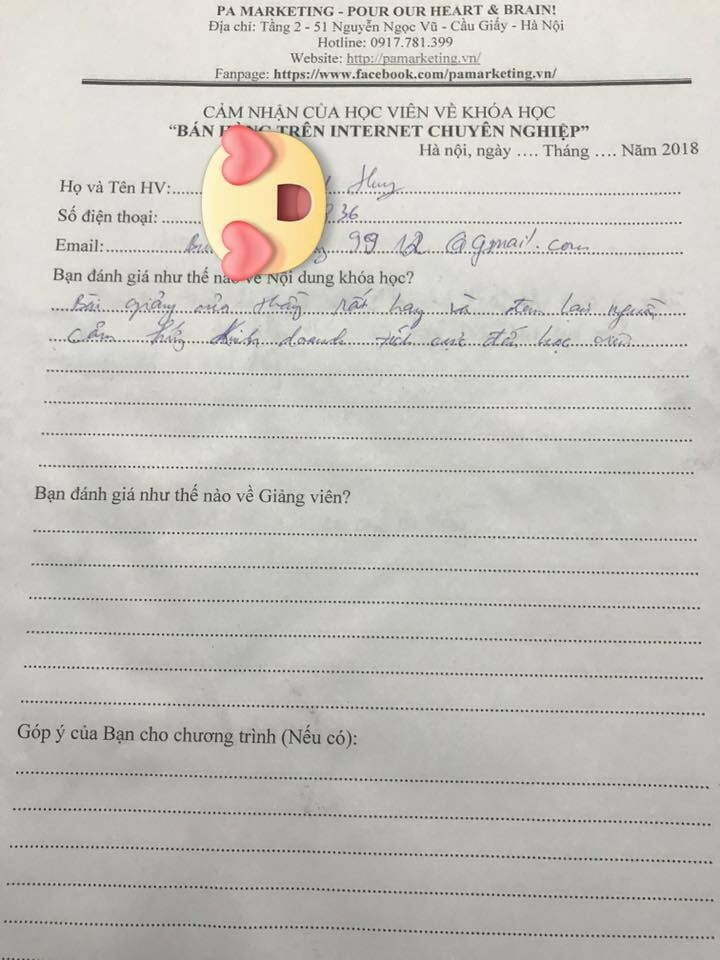 PA MARKETING - POUR OUR HEART & BRAIN!
Địa chỉ: Tầng 2 - 51 Nguyễn Ngọc Vũ - Cầu Giấy - Hà Nội
Hotline: 0917.781.399
Website: http://pamarketing.vn/
Fanpage: https://www.facebook.com/pamarketing.vn/
CẢM NHẬN CỦA HỌC VIÊN VỀ KHÓA HỌC
“BÁN HÀNG TRÊN INTERNET CHUYÊN NGHIỆP”
Hà nội, ngày .... Tháng .... Năm 2018
Họ và Tên HV: Huy
Số điện thoại: 36
Email: 99 12 @gmail.com
Bạn đánh giá như thế nào về Nội dung khóa học?
Bài giảng của thầy rất hay và đem lại nguồn
cảm hứng kinh doanh tích cực đến học viên
Bạn đánh giá như thế nào về Giảng viên?
Góp ý của Bạn cho chương trình (Nếu có):